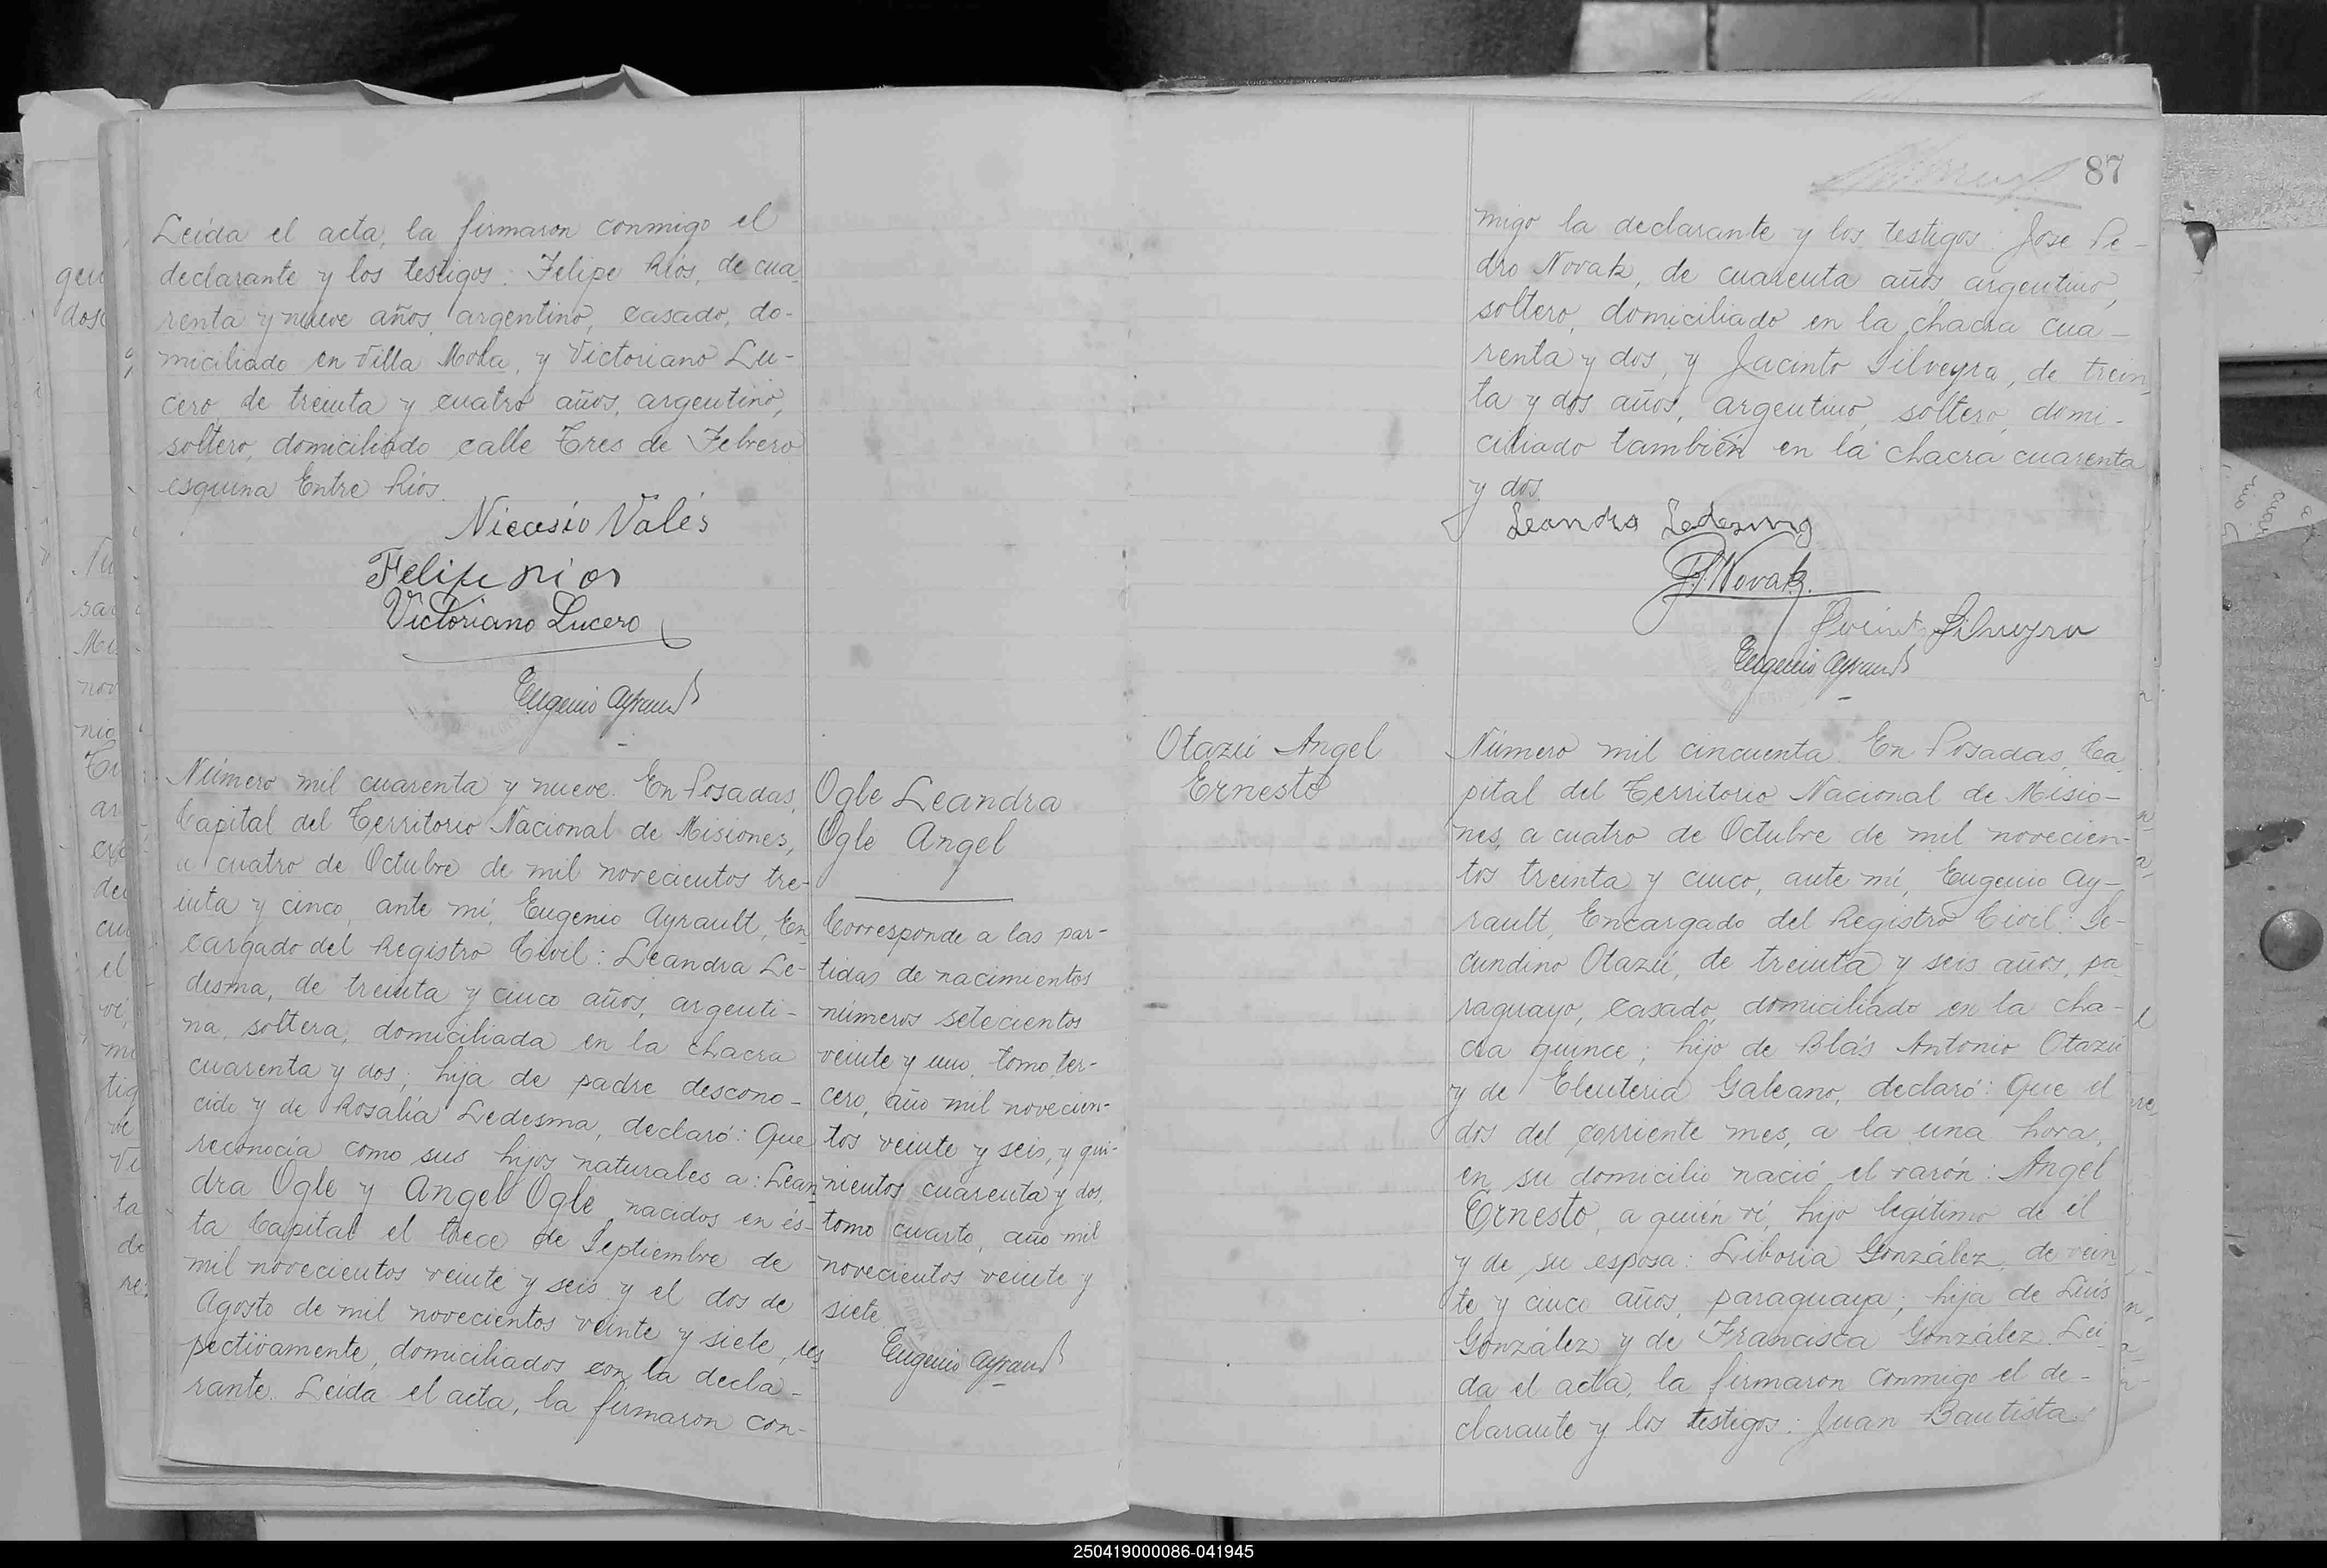 Leida el acta, la firmaron conmigo el
declarante y los testigos: Felipe Ríos, de cua
renta y nueve años, argentino, casado, do-
miciliado en Villa Mola, y Victoriano Lu-
cero, de treinta y cuatro años, argentino,
soltero, domiciliado calle Tres de Febrero
esquina Entre Ríos.
Nicasio Valés
Felipe rios
Victoriano Lucero
Eugenio Ayrault
Número mil cuarenta y nueve. En Posadas,
Capital del Territorio Nacional de Misiones,
a cuatro de Octubre de mil novecientos tre-
inta y cinco, ante mí, Eugenio Ayrault, En
cargado del Registro Civil: Leandra Le-
desma, de treinta y cinco años, argenti-
na, soltera, domiciliada en la chacra
cuarenta y dos; hija de padre descono-
cido y de Rosalía Ledesma, declaró: Que
reconocía como sus hijos naturales a: Lean
dra Ogle y Angel Ogle, nacidos en és-
ta Capital el trece de Septiembre de
mil novecientos veinte y seis y el dos de
Agosto de mil novecientos veinte y siete, res
pectivamente, domiciliados con la decla-
rante. Leida el acta, la firmaron con-
Ogle Leandra
Ogle Angel
Corresponde a las par-
tidas de nacimientos
números setecientos
veinte y uno, tomo ter-
cero, año mil novecien-
tos veinte y seis, y qui-
nientos cuarenta y dos,
tomo cuarto, año mil
novecientos veinte y
siete.
Eugenio Ayrault
87
migo la declarante y los testigos: José Pe-
dro Novak, de cuarenta años, argentino,
soltero, domiciliado en la chacra cua-
renta y dos, y Jacinto Silveyra, de trein
ta y dos años, argentino, soltero, domi-
ciliado también en la chacra cuarenta
y dos.
Leandra Ledezma
J.P. Novak.
Jacinto Silveyra
Eugenio Ayrault
Otazú Angel
Ernesto
Número mil cincuenta. En Posadas, Ca
pital del Territorio Nacional de Misio-
nes, a cuatro de Octubre de mil novecien-
tos treinta y cinco, ante mí, Eugenio Ay-
rault, Encargado del Registro Civil: Se-
cundino Otazú, de treinta y seis años, pa
raguayo, casado, domiciliado en la cha-
cra quince; hijo de Blás Antonio Otazú
y de Eleuteria Galeano, declaró: Que el
dos del corriente mes, a la una hora,
en su domicilio nació el varón: Angel
Ernesto, a quién ví, hijo legítimo de él
y de su esposa: Liboria González, de vein
te y cinco años, paraguaya; hija de Luís
González y de Francisca González. Lei
da el acta, la firmaron conmigo el de-
clarante y los testigos: Juan Bautista
250419000086-041945